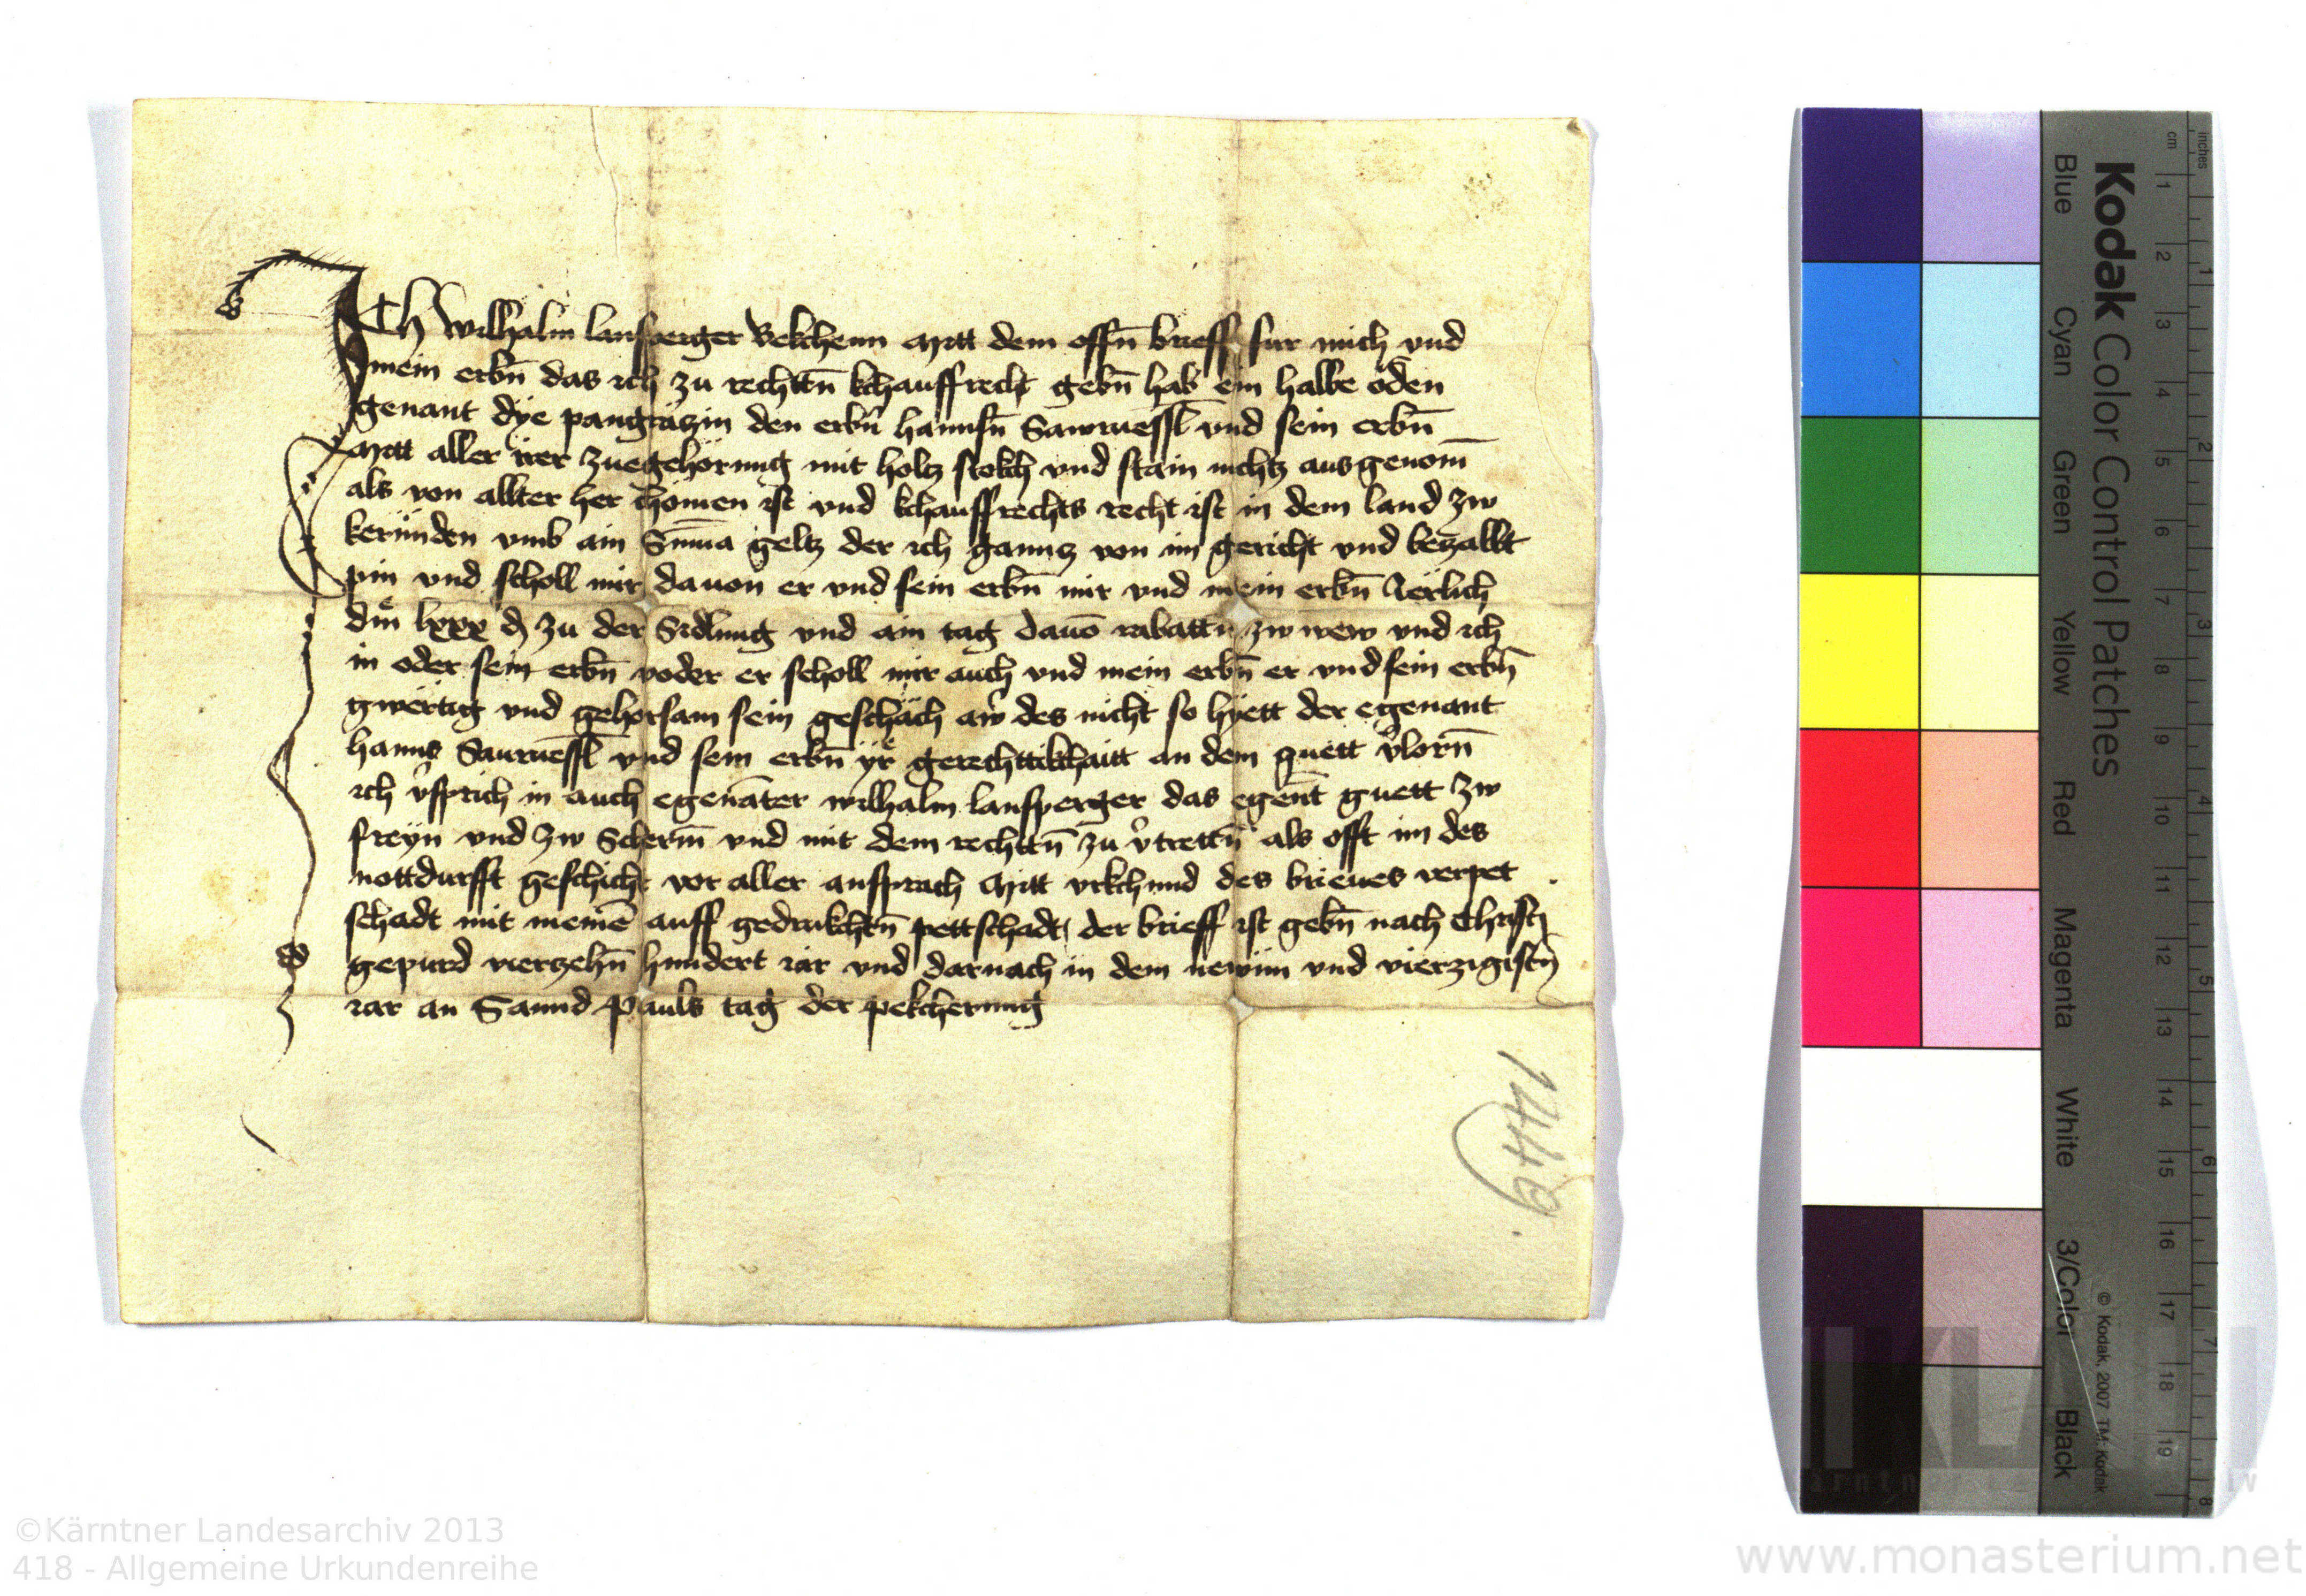 Ich wilhalm lansperger Bekchenn Mitt dem offn̄ brieff fur mich vnd
mein erbn̄ das ich zu rechttn̄ kchauffrecht gebn̄ hab ein halbe öden
genant dÿe pangräczin den erbn̄ hannsn̄ Sawruessl vnd sein erbn̄
Mitt aller irer zuegehörung mit holtz stokch vnd stain nichtz ausgenom̄
als von allter her chömen ist vnd kchauffrechts recht ist in dem land zw
kernnden vmb ain Sum̄a geltz der ich ganncz von im gericht vnd beczallt
pin vnd scholl mir dauon er vnd sein erbn̄ mir vnd mein erbn̄ Järlich
din lxxx ₰ zu der Stifftung vnd ain tag dauō rabattn̄ zw wew vnd ich
in oder sein erbn̄ voder er scholl mir auch vnd mein erbn̄ er vnd sein erbn̄
gwërtig vnd gehorsam sein geschäch aw̄ des nicht so hÿett der egenant
hanns Sauruessl vnd sein erbn̄ ÿr gerechttikchaitt an dem guett v̄lorn̄
ich v̄sprich in auch egenāter wilhalm lansperger das egen̄t guett zw
freÿn vnd zw Scherm̄ vnd mit dem rechttn̄ zu v̄trettn̄ als offt im des
nottdurfft geschicht vor aller ansprach Mitt vrkchund des brieues verpet
schadt mit meinē auff gedrukchtn̄ pettschadt der brieff ist gebn̄ nach Christj
gepurd vierzehn̄ hundert iar vnd darnach in dem newnn vnd vierzigistn̄
iar an Sannd pauls tag der pekcherung
1449.
Kodak Color Control Patches
Blue Cyan Green Yellow Red Magenta White 3/Color Black
© Kodak, 2007 TM: Kodak
inches 1 2 3 4 5 6 7 8
cm 1 2 3 4 5 6 7 8 9 10 11 12 13 14 15 16 17 18 19
©Kärntner Landesarchiv 2013
418 - Allgemeine Urkundenreihe
www.monasterium.net